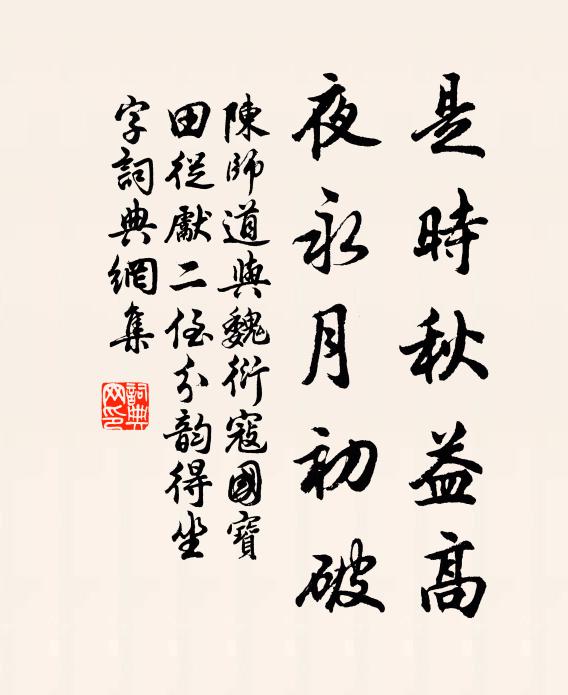 是時秋益高
夜永月初破
陳師道與魏衍寇國寶
田從獻二侄分韵得坐
字詞典網集
詞典網印